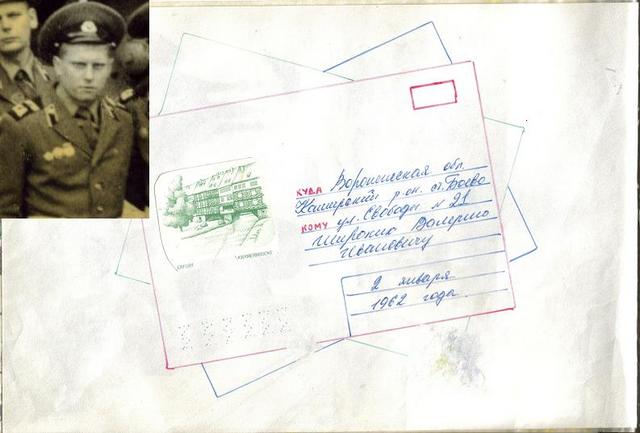 КУДА Воронежская обл.
Каширский р-он. с. Боево
КОМУ ул. Свободы № 21
Широких Валерию
Ивановичу
2 января
1962 года.
ERFURT KRÄMERBRÜCKE